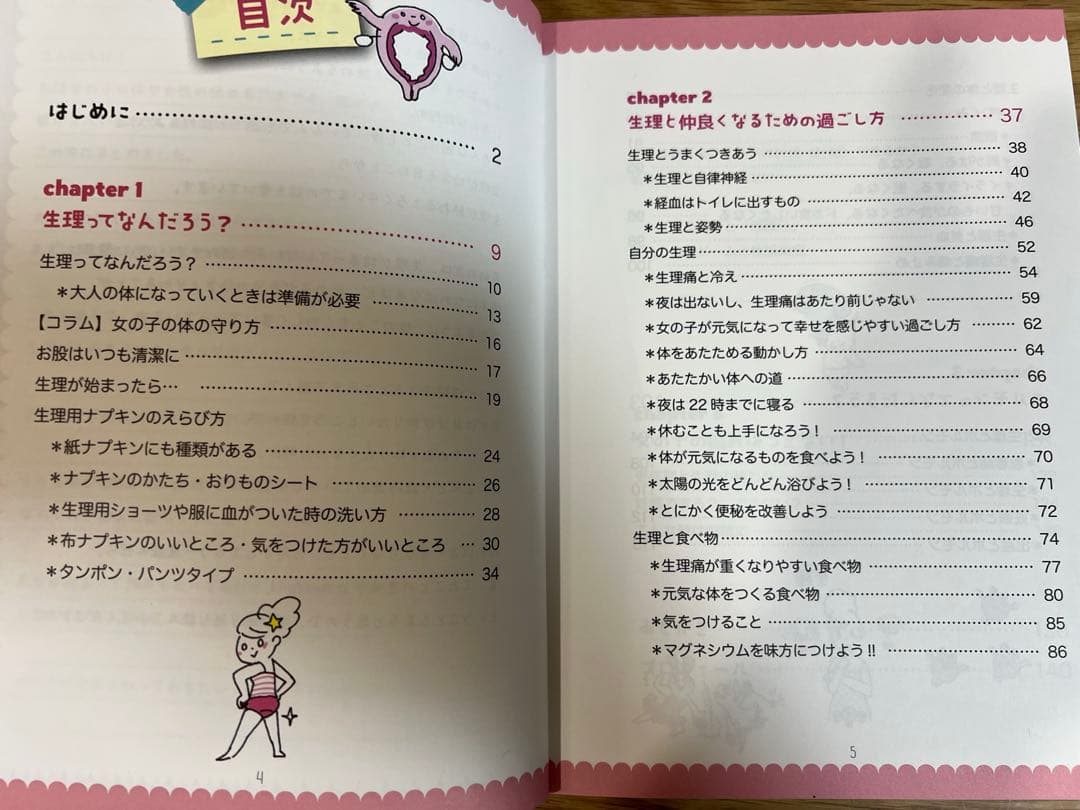 目次
はじめに………………………… 2
chapter 1
生理ってなんだろう？………………… 9
生理ってなんだろう？………………… 10
＊大人の体になっていくときは準備が必要 ……… 13
【コラム】女の子の体の守り方 ……………… 16
お股はいつも清潔に………………… 17
生理が始まったら… ………………… 19
生理用ナプキンのえらび方
＊紙ナプキンにも種類がある ……………… 24
＊ナプキンのかたち・おりものシート ………… 26
＊生理用ショーツや服に血がついた時の洗い方 ……… 28
＊布ナプキンのいいところ・気をつけた方がいいところ … 30
＊タンポン・パンツタイプ ……………… 34
4
chapter 2
生理と仲良くなるための過ごし方 ………… 37
生理とうまくつきあう ………………… 38
＊生理と自律神経………………… 40
＊経血はトイレに出すもの ……………… 42
＊生理と姿勢………………… 46
自分の生理………………… 52
＊生理痛と冷え………………… 54
＊夜は出ないし、生理痛はあたり前じゃない ……… 59
＊女の子が元気になって幸せを感じやすい過ごし方 ……… 62
＊体をあたためる動かし方 ……………… 64
＊あたたかい体への道………………… 66
＊夜は22時までに寝る ……………… 68
＊休むことも上手になろう！ ……………… 69
＊体が元気になるものを食べよう！ ………… 70
＊太陽の光をどんどん浴びよう！ ………… 71
＊とにかく便秘を改善しよう ……………… 72
生理と食べ物………………… 74
＊生理痛が重くなりやすい食べ物 ………… 77
＊元気な体をつくる食べ物 ……………… 80
＊気をつけること………………… 85
＊マグネシウムを味方につけよう!! ………… 86
5